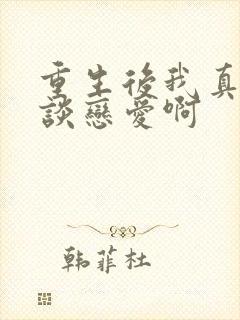 重生後我真
談戀愛啊
韩菲杜